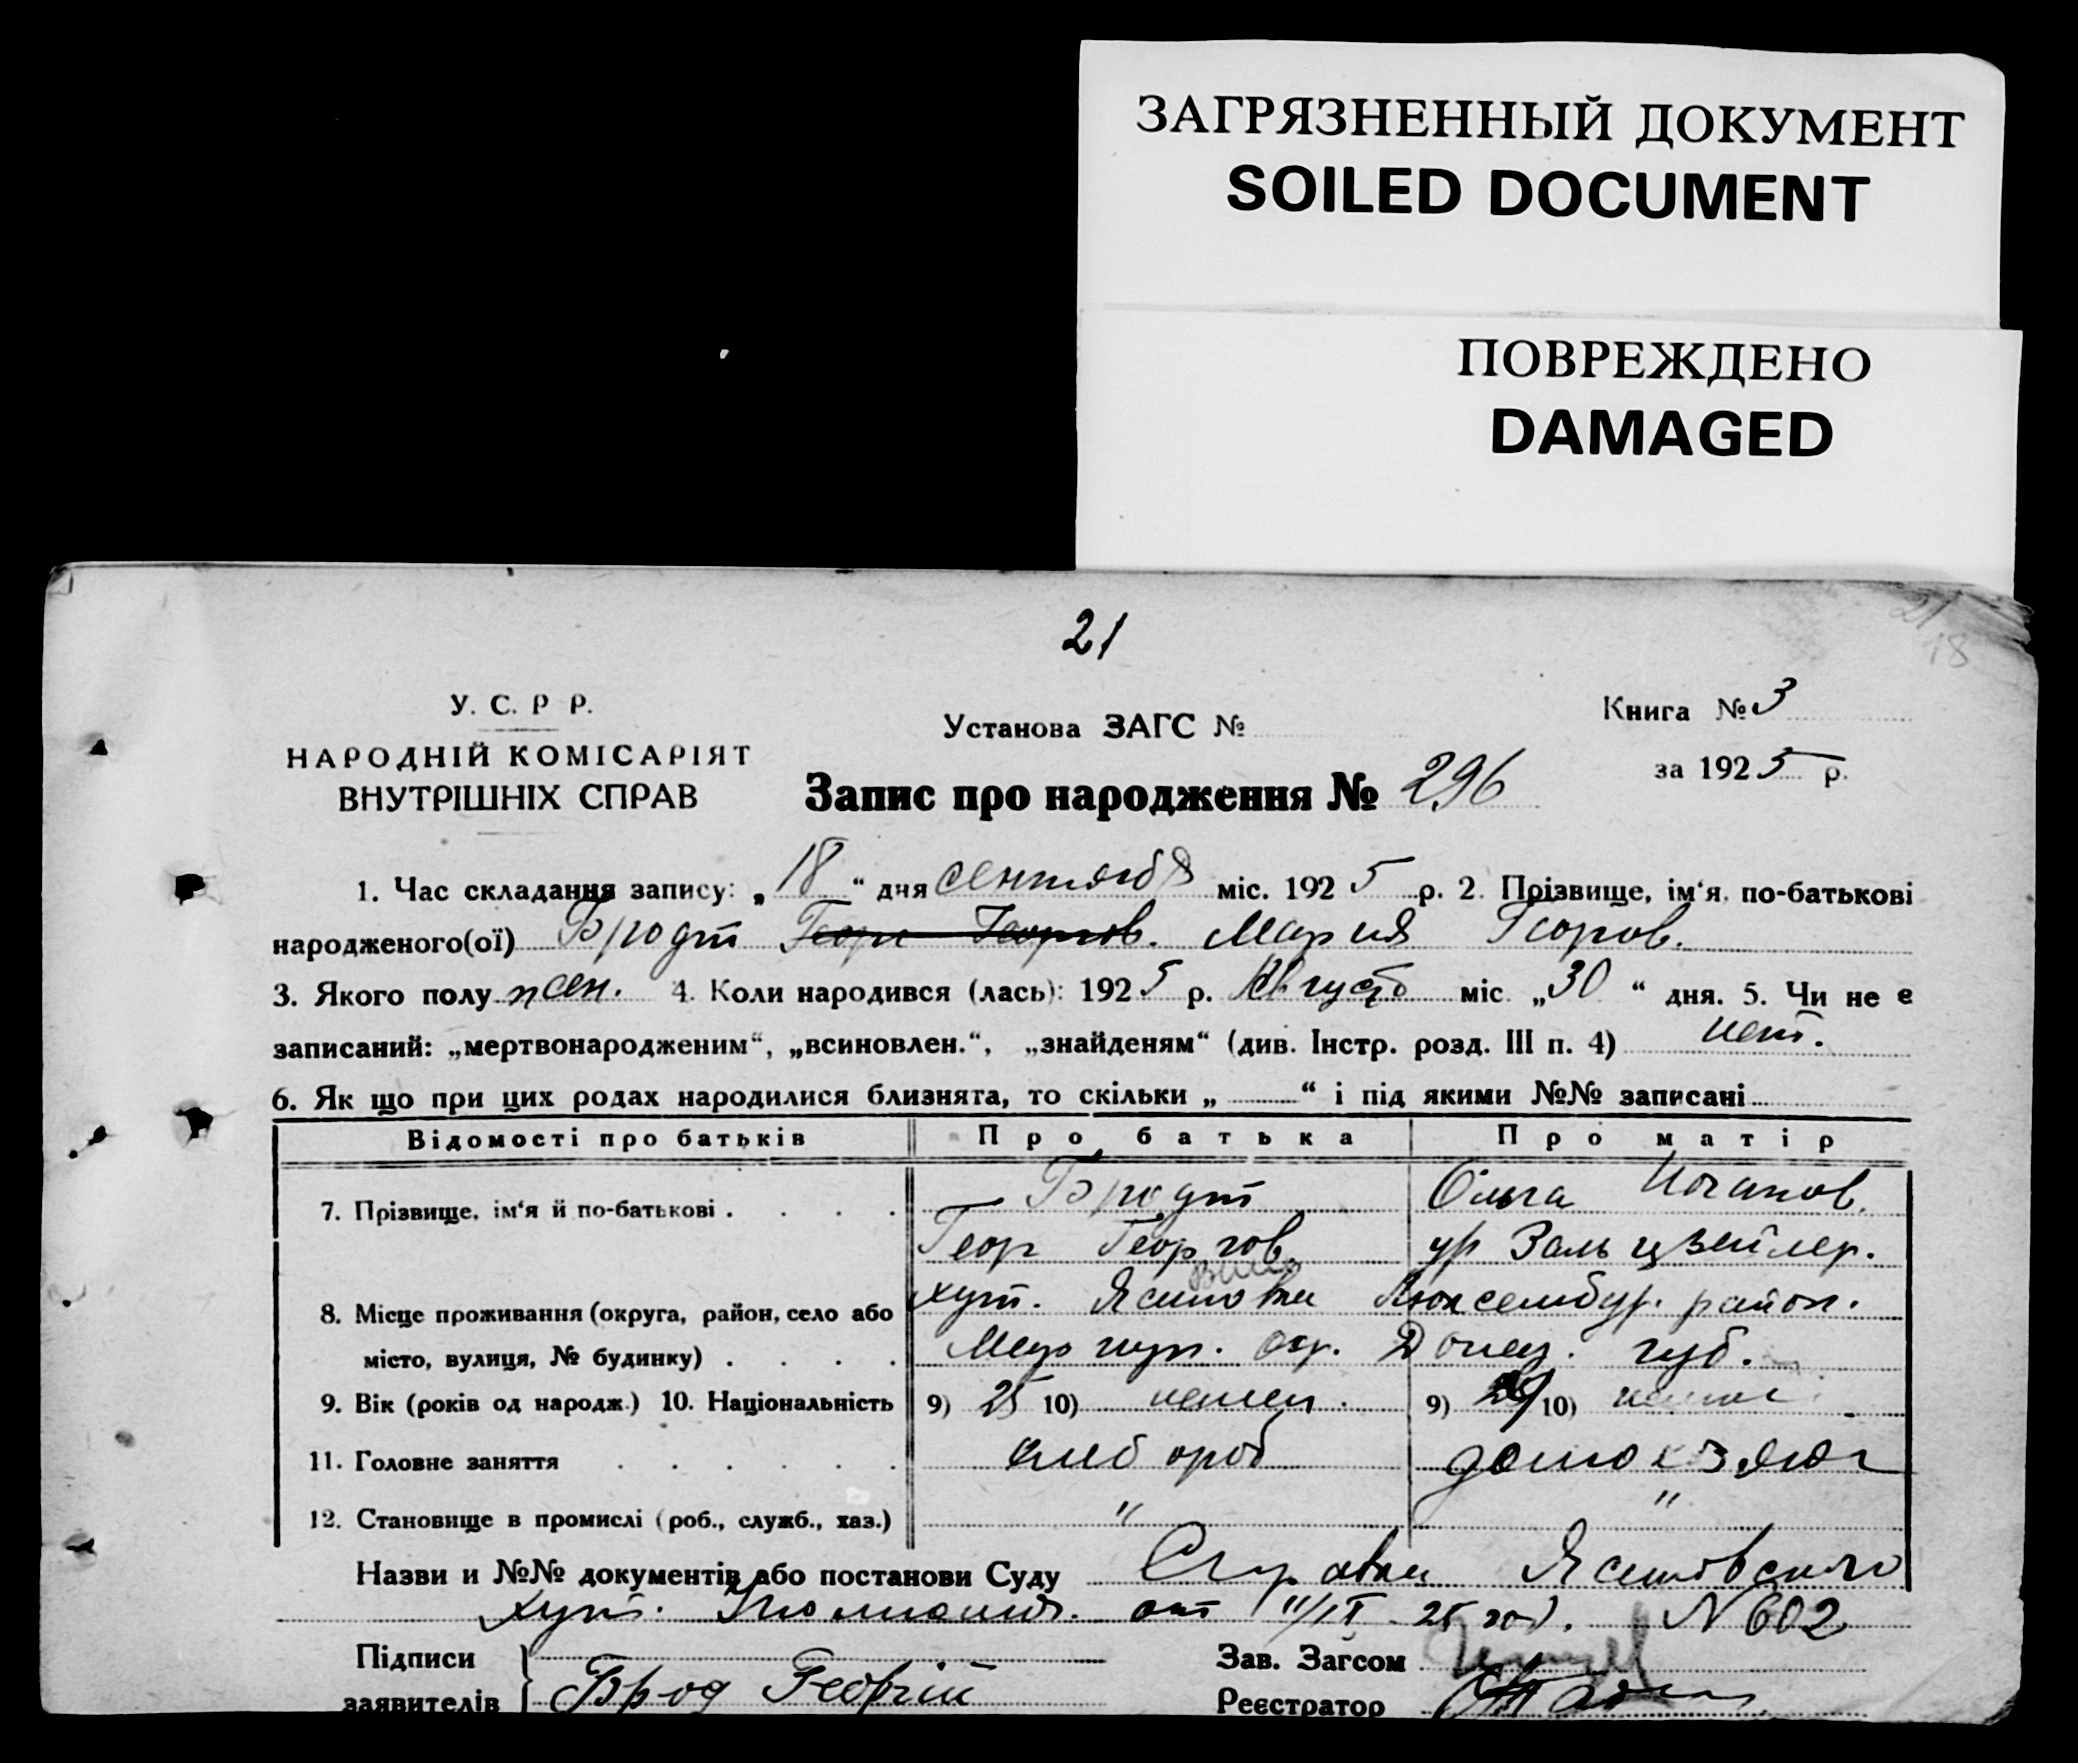 ЗАГРЯЗНЕННЫЙ ДОКУМЕНТ
SOILED DOCUMENT
ПОВРЕЖДЕНО
DAMAGED
21
21
18
У. С. Р Р.
НАРОДНІЙ КОМІСАРІЯТ
ВНУТРІШНІХ СПРАВ
Установа ЗАГС №
Книга № 3
за 1925 р.
Запис про народження № 296
1. Час складання запису: „ 18 “ дня сентября міс. 1925 р. 2. Прізвище, ім‘я, по-батькові
народженого(ої) Бродт Георг Георгов. Мария Георгов.
3. Якого полу жен. 4. Коли народився (лась): 1925 р. Августа міс. „30 “ дня. 5. Чи не є
записаний: „мертвонародженим“, „всиновлен.“, „знайденям“ (див. Інстр. розд. III п. 4) нет.
6. Як що при цих родах народилися близнята, то скільки „ “ і під якими №№ записані
Відомості про батьків Про батька Про матір
7. Прізвище, ім‘я й по-батькові . . . . Бродт Ольга Иоганов.
Георг Георгов. ур Зальцвейлер.
8. Місце проживання (округа, район, село або хут. Люксембур. район.
місто, вулиця, № будинку) . . . . окр. Донец. губ.
9. Вік (років од народж.) 10. Національність 9) 25 10) немец. 9) 10)
11. Головне заняття . . . . . . хлебороб
12. Становище в промислі (роб., служб., хаз.) " "
Назви и №№ документів або постанови Суду Справка
хут. от 25 год. N 602
Підписи
заявителів Брод Георгій
Зав. Загсом
Реєстратор